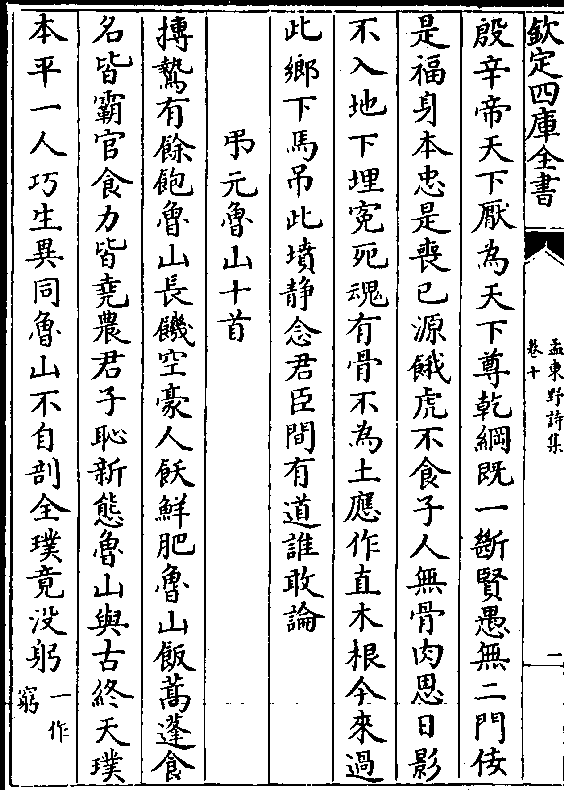 欽定四庫全書
孟東野詩集
卷十
一
殷辛帝天下厭為天下尊乾綱既一斷賢愚無二門佞
是福身本忠是喪已源餓虎不食子人無骨肉恩日影
不入地下埋寃死魂有骨不為土應作直木根今來過
此鄉下馬吊此墳静念君臣間有道誰敢論
弔元魯山十首
搏鷙有餘飽魯山長饑空豪人飫鮮肥魯山飯蒿蓬食
名皆霸官食力皆堯農君子恥新態魯山與古終天璞
本平一人巧生異同魯山不自剖全璞竟没躬一作窮